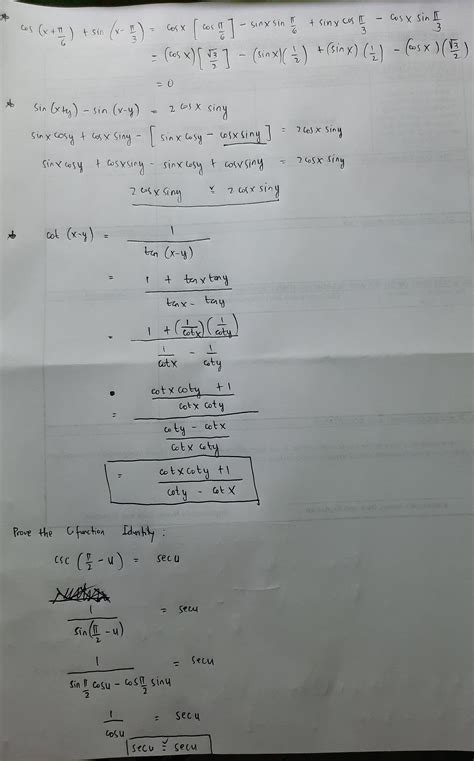 * cos (x + π/6) + sin (x - π/3) = cos x [cos π/6] - sin x sin π/6 + sin x cos π/3 - cos x sin π/3
= (cos x) [√3/2] - (sin x)(1/2) + (sin x)(1/2) - (cos x)(√3/2)
= 0
* sin (x+y) - sin (x-y) = 2 cos x sin y
sin x cos y + cos x sin y - [sin x cos y - cos x sin y] = 2 cos x sin y
sin x cos y + cos x sin y - sin x cos y + cos x sin y = 2 cos x sin y
2 cos x sin y ≅ 2 cos x sin y
* cot (x-y) = 1 / tan (x-y)
= (1 + tan x tan y) / (tan x - tan y)
= (1 + (1/cot x)(1/cot y)) / (1/cot x - 1/cot y)
= ((cot x cot y + 1) / (cot x cot y)) / ((cot y - cot x) / (cot x cot y))
= (cot x cot y + 1) / (cot y - cot x)
Prove the Cofunction Identity :
csc (π/2 - u) = sec u
1 / sin (π/2 - u) = sec u
1 / (sin π/2 cos u - cos π/2 sin u) = sec u
1 / cos u = sec u
sec u ≅ sec u